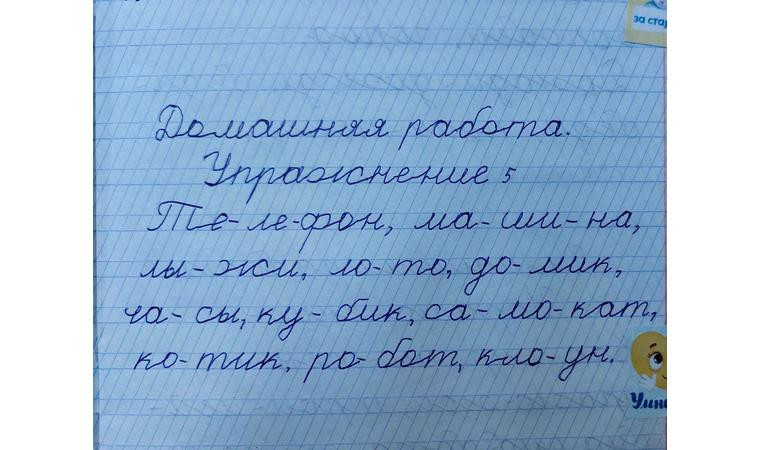 за стар
Домашняя работа.
Упражнение 5
Те-ле-фон, ма-ши-на,
лы-жи, ло-то, до-мик,
ча-сы, ку-бик, са-мо-кат,
ко-тик, ро-бот, кло-ун.
Умни